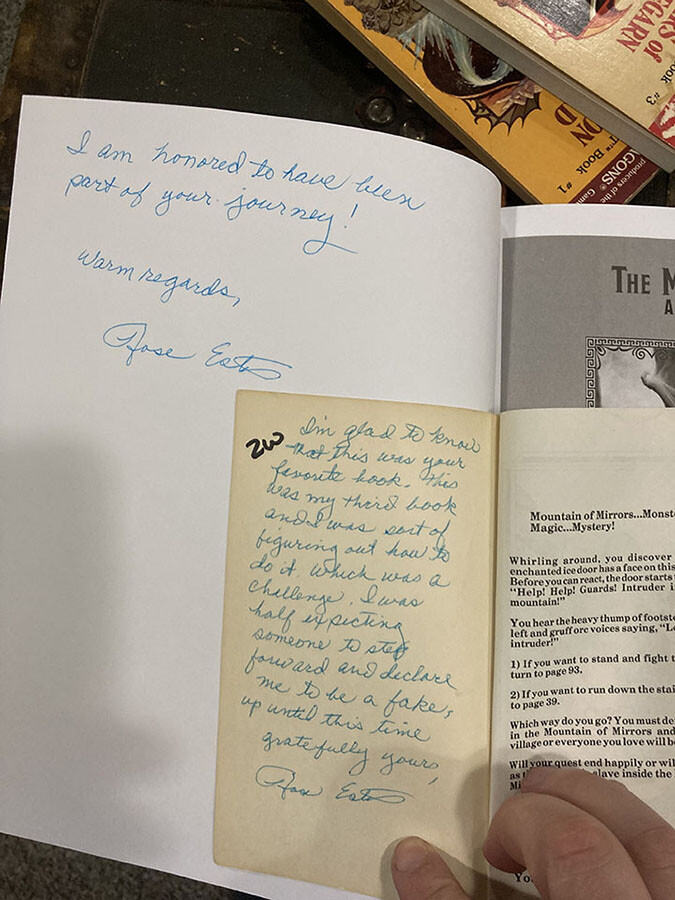 RS of
GARN
OOK #3
ON
D
™ Book #1
GONS®
producers of the
Gam
I am honored to have been
part of your journey!
Warm regards,
Rose Estes
THE M
A
2W
I'm glad to know
that this was your
favorite book. This
was my third book
and I was sort of
figuring out how to
do it. Which was a
challenge. I was
half expecting
someone to step
forward and declare
me to be a fake,
up until this time
gratefully yours,
Rose Estes
Mountain of Mirrors...Monst
Magic...Mystery!
Whirling around, you discover
enchanted ice door has a face on this
Before you can react, the door starts
"Help! Help! Guards! Intruder i
mountain!"
You hear the heavy thump of footste
left and gruff orc voices saying, "L
intruder!"
1) If you want to stand and fight t
turn to page 93.
2) If you want to run down the stai
to page 39.
Which way do you go? You must de
in the Mountain of Mirrors and
village or everyone you love will b
Will your quest end happily or wil
as slave inside the
Mi
Yo